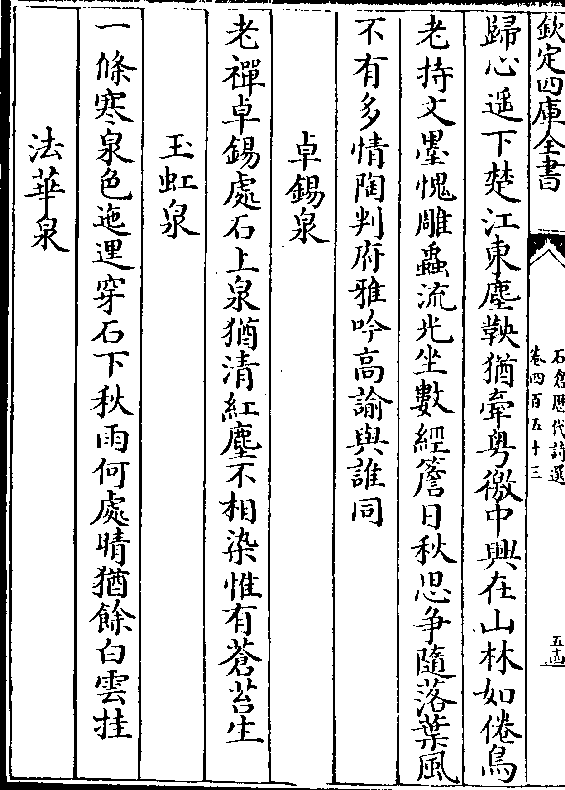 欽定四庫全書
石倉歷代詩選
卷四百五十三
五十四
歸心遥下楚江東塵鞅猶牽粤徼中興在山林如倦鳥
老持文墨愧雕蟲流光坐數經簷日秋思争隨落葉風
不有多情陶判府雅吟高諭與誰同
卓錫泉
老禪卓錫處石上泉猶清紅塵不相染惟有蒼苔生
玉虹泉
一條寒泉色迤邐穿石下秋雨何處晴猶餘白雲挂
法華泉